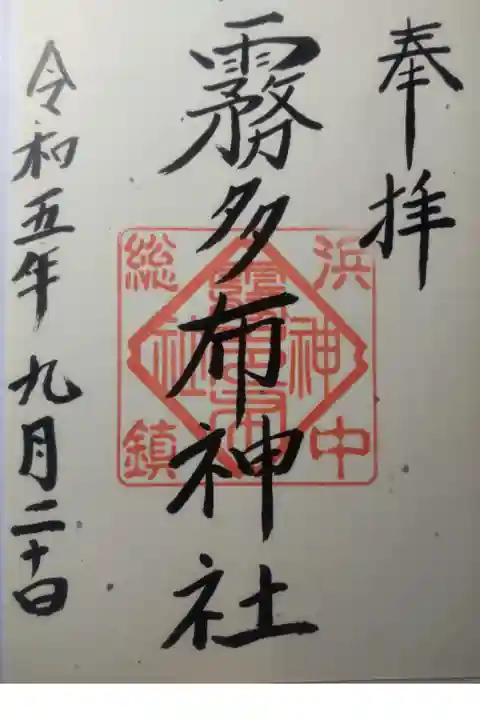 奉拝
霧多布神社
令和五年九月二十日
浜中
総鎮
神社